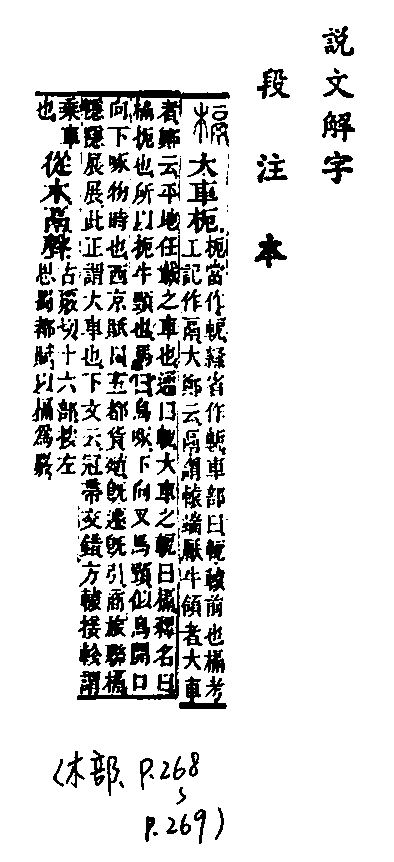 説文解字
段注本
槅
大車枙
枙當作軶隸省作軛車部曰軶轅前也槅考
工記作鬲大鄭云鬲謂轅端厭牛領者大車
者鄭云平地任載之車也通曰軶大車之軶曰槅釋名曰
槅扼也所以扼牛頸也馬曰烏啄下向叉馬頸似烏開口
向下啄物時也西京賦曰五都貨殖旣遷旣引商旅聯槅
隱隱展展此正謂大車也下文云冠帶交錯方轅接軫謂
乘車
也
從木鬲聲
古覈切十六部按左
思蜀都賦以槅爲覈
(木部、P.268
~
P.269)